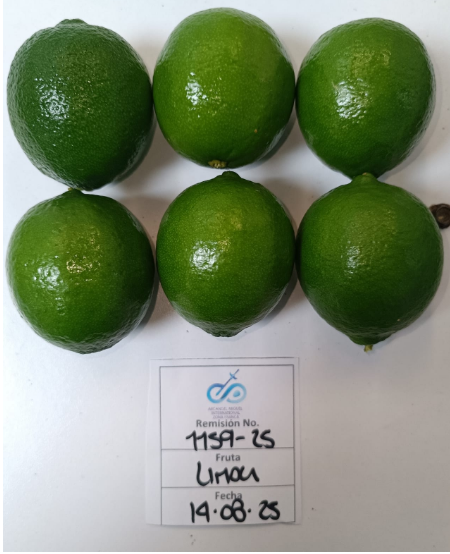 Remisión No.
1159-25
Fruta
Limon
Fecha
14.08.25